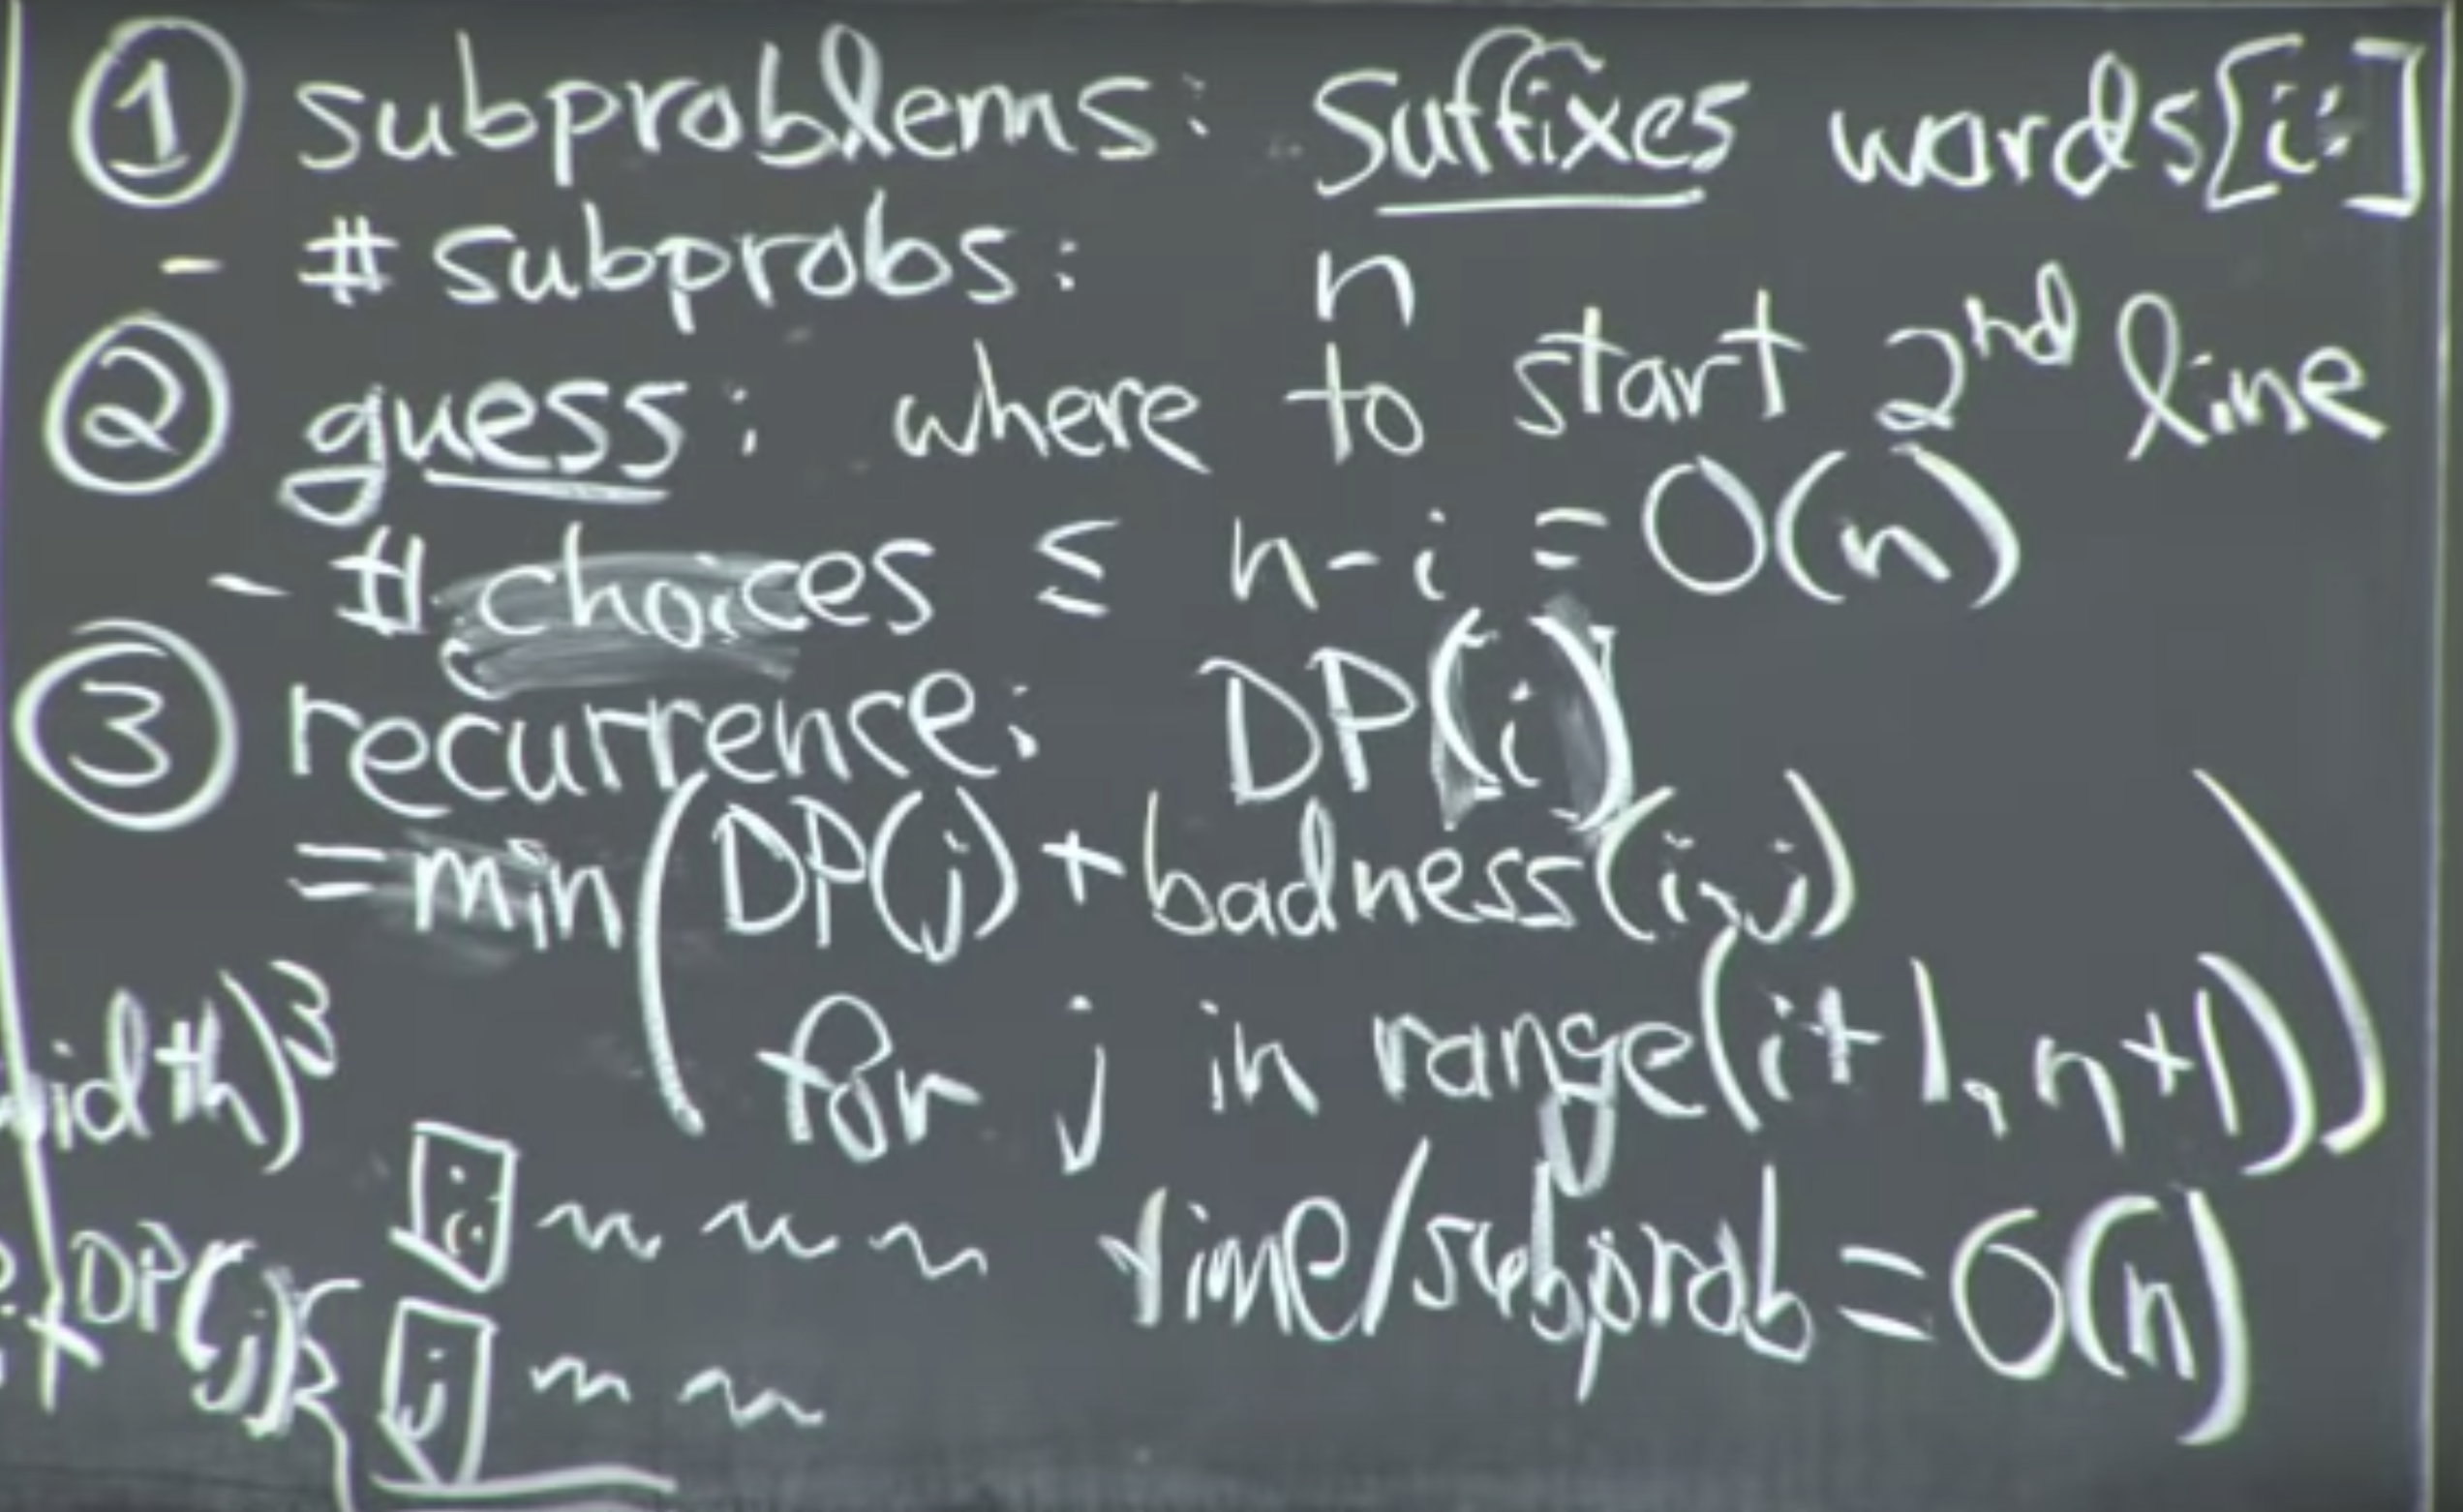 ① subproblems: suffixes words[i:]
- # subprobs: n
② guess: where to start 2nd line
- # choices ≤ n-i = O(n)
③ recurrence: DP(i)
= min(DP(j) + badness(i,j)
for j in range(i+1, n+1))
idth)³
i
time/subprob = O(n)
+ DP(j) { j